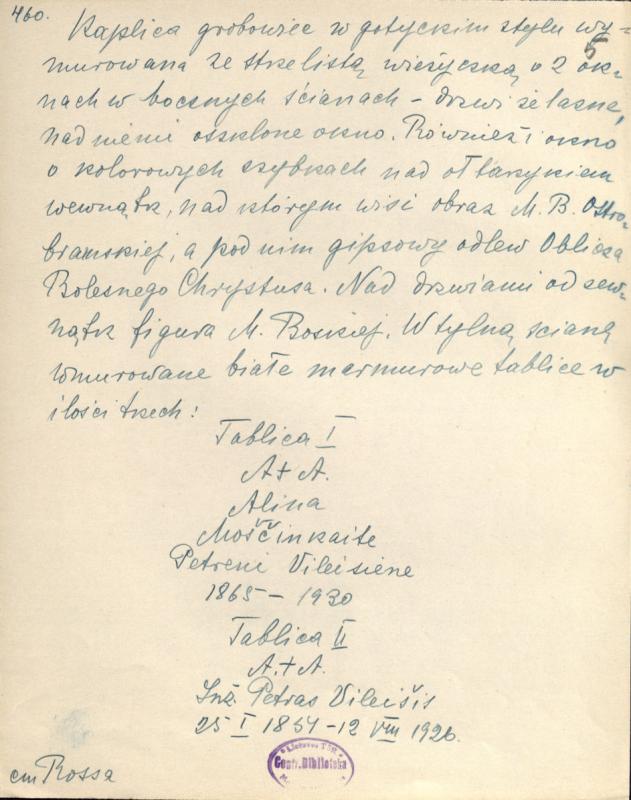 460.
5
Kaplica grobowiec w gotyckim stylu wy-
murowana ze strzelistą wieżyczką o 2 ok-
nach w bocznych ścianach - drzwi żelazne,
nad niemi oszklone okno. Również i okno
o kolorowych szybkach nad ołtarzykiem
wewnątrz, nad którym wisi obraz M. B. Ostro-
bramskiej, a pod nim gipsowy odlew Oblicza
Bolesnego Chrystusa. Nad drzwiami od zew-
nątrz figura M. Boskiej. W tylną ścianę
wmurowane białe marmurowe tablice w
ilości trzech:
Tablica I
A + A.
Alina
Moščinkaite
Petreni Vileisiene
1865 - 1930
Tablica II
A. + A.
Inž. Petras Vileišis
25 I 1851 - 12 VIII 1926.
Centr. Biblioteka
cm Rossa